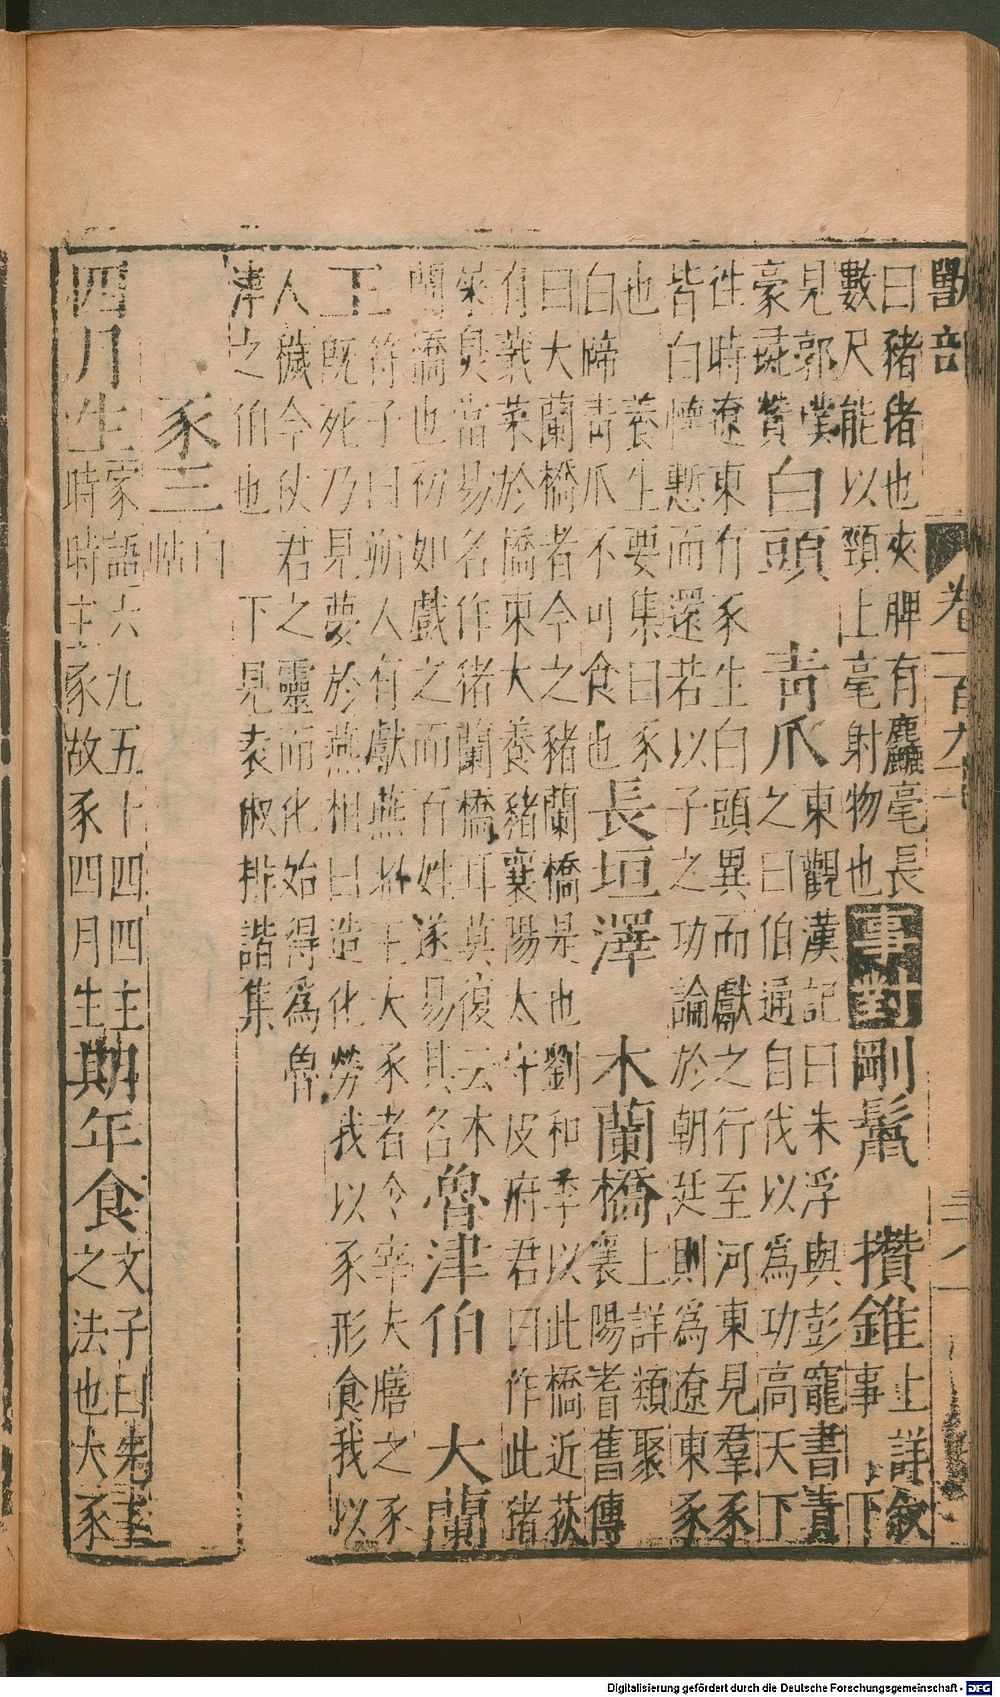 獸部 卷一百九十
曰豬豨也夾脾有麤毫長
數尺能以頸上毫射物也
事對 剛鬣 攢錐
上詳敘
事下
見郭璞
豪彘贊
白頭 青爪
東觀漢記曰朱浮與彭寵書責
之曰伯通自伐以為功高天下
往時遼東有豕生白頭異而獻之行至河東見羣豕
皆白懷慙而還若以子之功論於朝廷則為遼東豕
也 養生要集曰豕
白蹄青爪不可食也
長垣澤 木蘭橋
上詳類聚
襄陽耆舊傳
曰大蘭橋者今之豬蘭橋是也劉和季以此橋近荻
有蕺菜於橋東大養豬襄陽太守皮府君曰作此豬
柴臭當易名作猪蘭橋耳莫復云木
蘭橋也初如戲之而百姓遂易其名
魯津伯 大蘭
王
符子曰朔人有獻燕昭王大豕者令宰夫膳之豕
既死乃見夢於燕相曰造化勞我以豕形食我以
人穢今仗君之靈而化始得為魯
津之伯也 下見袁淑俳諧集
豕三 白帖
四月生
家語六九五十四四主
時時主豕故豕四月生
期年食
文子曰先王
之法也犬豕
Digitalisierung gefördert durch die Deutsche Forschungsgemeinschaft - DFG